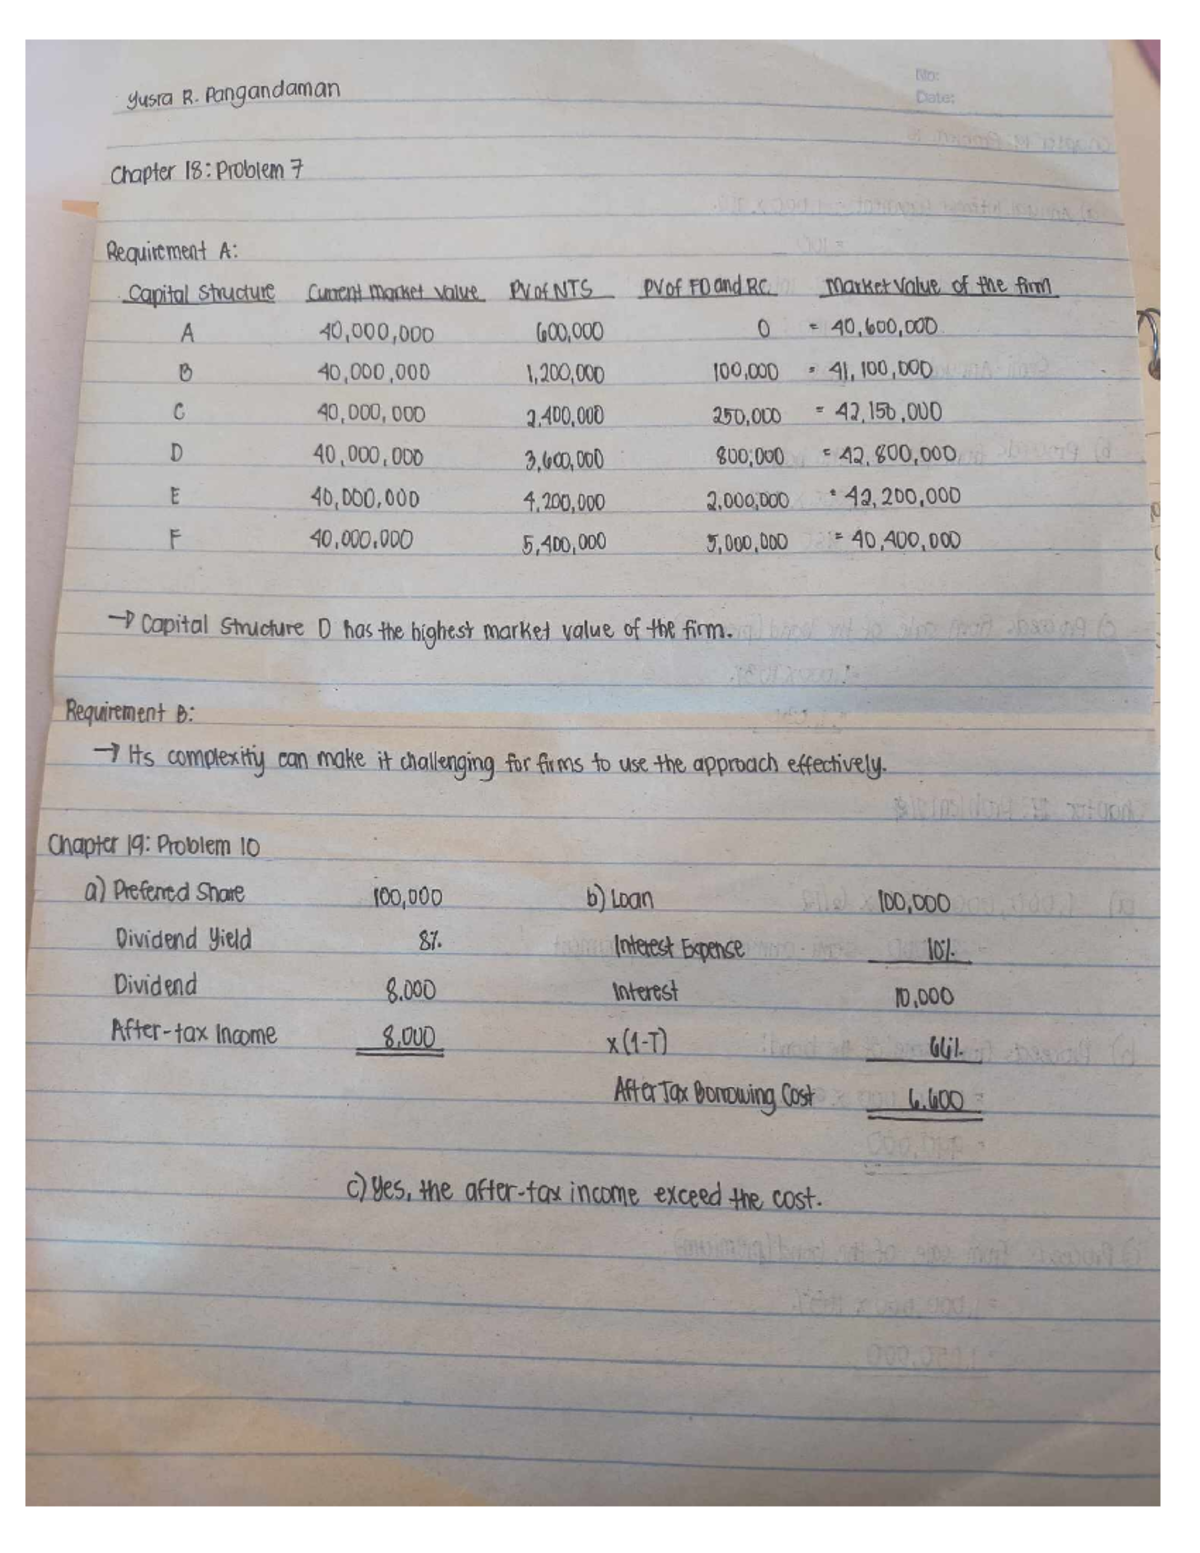 No:
Date:
Yusra R. Pangandaman
Chapter 18: Problem 7
Requirement A:
Capital Structure Current market value PV of NTS PV of FD and RC Market Value of the firm
A 40,000,000 600,000 0 = 40,600,000
B 40,000,000 1,200,000 100,000 = 41,100,000
C 40,000,000 2,400,000 250,000 = 42,150,000
D 40,000,000 3,600,000 800,000 = 42,800,000
E 40,000,000 4,200,000 2,000,000 = 42,200,000
F 40,000,000 5,400,000 5,000,000 = 40,400,000
→ Capital Structure D has the highest market value of the firm.
Requirement B:
→ Its complexity can make it challenging for firms to use the approach effectively.
Chapter 19: Problem 10
a) Preferred Share 100,000 b) Loan 100,000
Dividend Yield 8% Interest Expense 10%
Dividend 8,000 Interest 10,000
After-tax Income 8,000 x (1-T) 66%
After Tax Borrowing Cost 6,600
c) Yes, the after-tax income exceed the cost.